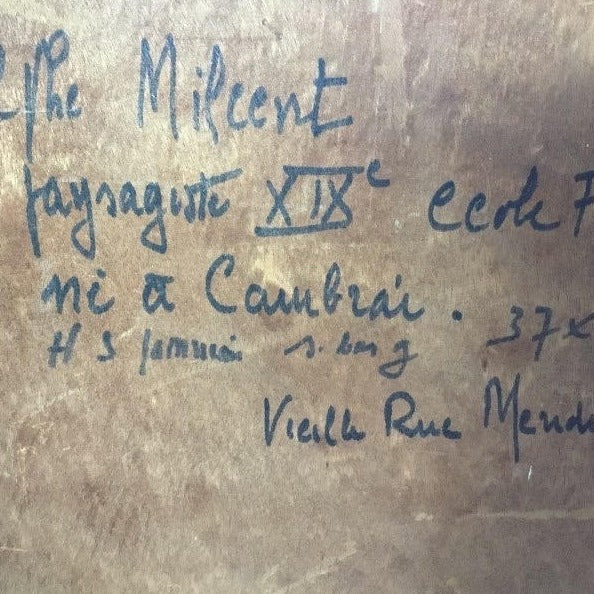 Milcent
paysagiste XIXe ecole F
né à Cambrai.
H S panneau s. bas g 37x
Vieille Rue Mende